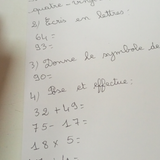 quatre-vingt
2) Écris en lettres.
64=
93=
3) Donne le symbole de
90=
4) Pose et effectue:
32+49=
75-17=
18x5=